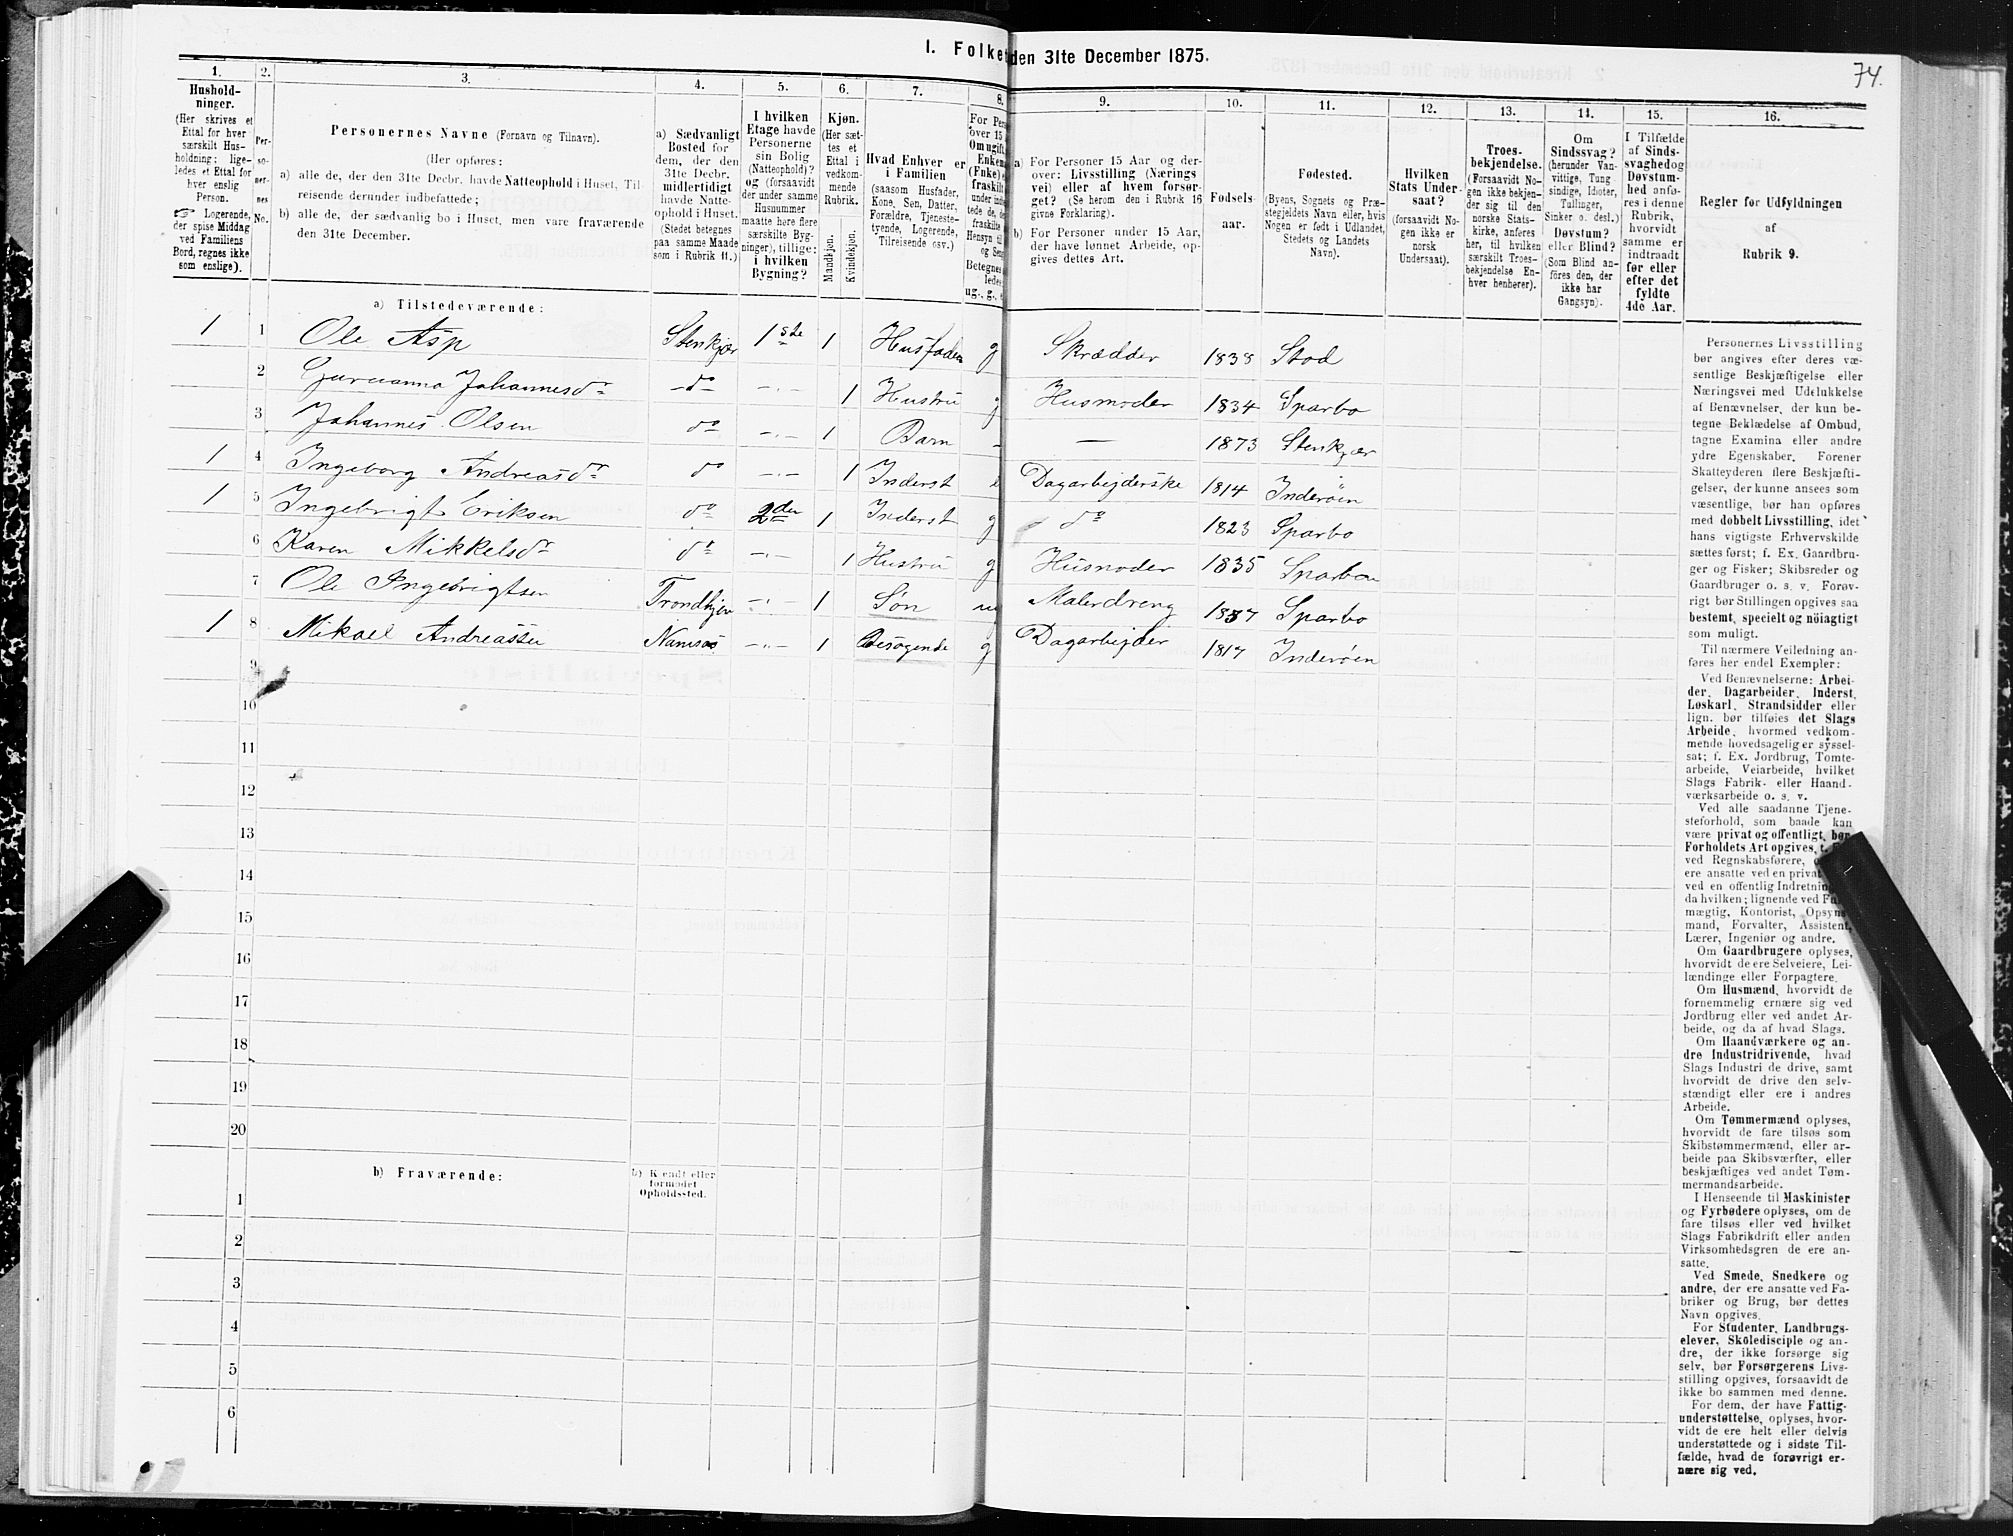 I. Folke den 31te December 1875.
74.
1. 2. 3. 4. 5. 6. 7. 8. 9. 10. 11. 12. 13. 14. 15. 16.
Hushold-
ninger.
(Her skrives et
Ettal for hver
særskilt Hus-
holdning; lige-
ledes et Ettal for
hver enslig
Person.
☞ Logerende,
der spise Middag
ved Familiens
Bord, regnes ikke
som enslige).
Per-
so-
ner-
nes
No.
Personernes Navne (Fornavn og Tilnavn).
(Her opføres:
a) alle de, der den 31te Decbr. havde Natteophold i Huset, Til-
reisende derunder indbefattede;
b) alle de, der sædvanlig bo i Huset, men vare fraværende
den 31te December.
a) Sædvanligt
Bosted for
dem, der den
31te Decbr.
midlertidigt
havde Natte-
ophold i Huset.
(Stedet betegnes
paa samme Maade
som i Rubrik 11.)
I hvilken
Etage havde
Personerne
sin Bolig
(Natteophold)?
og (forsaavidt
der under samme
Husnummer
maatte høre flere
særskilte Byg-
ninger), tillige:
i hvilken
Bygning?
Kjøn.
(Her sæt-
tes et
Ettal i
vedkom-
mende
Rubrik.
Mandkjøn.
Kvindekjøn.
Hvad Enhver er
i Familien
(saasom Husfader,
Kone, Søn, Datter,
Forældre, Tjeneste-
tyende, Logerende,
Tilreisende osv.)
For Pers
over 15
Om ugift,
Enkem
(Enke) e
fraskilt
under ind
tede de,
fraskilte
Hensyn til
og Sen
Betegnes
ledes
ug., g., e
a) For Personer 15 Aar og der-
over: Livsstilling (Nærings
vei) eller af hvem forsør-
get? (Se herom den i Rubrik 16
givne Forklaring).
b) For Personer under 15 Aar,
der have lønnet Arbeide, op-
gives dettes Art.
Fødsels-
aar.
Fødested.
(Byens, Sognets og Præ-
stegjeldets Navn eller, hvis
Nogen er født i Udlandet,
Stedets og Landets
Navn).
Hvilken
Stats Under-
saat?
(forsaavidt No-
gen ikke er
norsk
Undersaat).
Troes-
bekjendelse.
(Forsaavidt No-
gen ikke bekjen-
der sig til den
norske Stats-
kirke, anføres
her, til hvilken
særskilt Troes-
bekjendelse En-
hver henhører).
Om
Sindssvag?
(herunder Van-
vittige, Tung
sindige, Idioter,
Tullinger,
Sinker o. desl.)
Døvstum?
eller Blind?
(Som Blind an-
føres den, der
ikke har
Gangsyn).
I Tilfælde
af Sinds-
svaghed og
Døvstum-
hed anfø-
res i denne
Rubrik,
hvorvidt
samme er
indtraadt
før eller
efter det
fyldte
4de Aar.
Regler for Udfyldningen
af
Rubrik 9.
a) Tilstedeværende:
1 1 Ole Asp Stenkjær 1ste 1 Husfader g Skrædder 1838 Stod
2 Guruanna Johannesdr do -"- 1 Hustru g Husmoder 1834 Sparbo
3 Johannes Olsen do -"- 1 Barn - — 1873 Stenkjær
1 4 Ingeborg Andreasdr do -"- 1 Inderst e Dagarbejderske 1814 Inderøen
1 5 Ingebrigt Eriksen do 2den 1 Inderst g do 1823 Sparbo
6 Karen Mikkelsdr do -"- 1 Hustru g Husmoder 1835 Sparbo
7 Ole Ingebrigtsen Trondhjem -"- 1 Søn ug Malerdreng 1857 Sparbo
1 8 Mikael Andreassen Namsos -"- 1 Besøgende g Dagarbejder 1817 Inderøen
9
10
11
12
13
14
15
16
17
18
19
20
b) Fraværende:
b) Kjendt eller
formodet
Opholdssted.
1
2
3
4
5
6
Personernes Livsstilling
bør angives efter deres væ-
sentlige Beskjæftigelse eller
Næringsvei med Udelukkelse
af Benævnelser, der kun be-
tegne Beklædelse af Ombud,
tagne Examina eller andre
ydre Egenskaber. Forener
Skatteyderen flere Beskjæfti-
gelser, der kunne ansees som
væsentlige, bør han opføres
med dobbelt Livsstilling, idet
hans vigtigste Erhvervskilde
sættes først; f. Ex. Gaardbru-
ger og Fisker; Skibsreder og
Gaardbruger o. s. v. Forøv-
rigt bør Stillingen opgives saa
bestemt, specielt og nöiagtigt
som muligt.
Til nærmere Veiledning an-
føres her endel Exempler:
Ved Benævnelserne: Arbei-
der, Dagarbeider, Inderst,
Løskarl, Strandsidder eller
lign. bør tilføies det Slags
Arbeide, hvormed vedkom-
mende hovedsagelig er syssel-
sat; f. Ex. Jordbrug, Tomte-
arbeide, Veiarbeide, hvilket
Slags Fabrik- eller Haand-
værksarbeide o. s. v.
Ved alle saadanne Tjene-
steforhold, som baade kan
være privat og offentligt, bør
Forholdets Art opgives,
ved Regnskabsførere,
ere ansatte ved en privat
ved en offentlig Indretning
da hvilken; lignende ved
mægtig, Kontorist, Opsyns-
mand, Forvalter, Assistent,
Lærer, Ingeniør og andre.
Om Gaardbrugere oplyses,
hvorvidt de ere Selveiere, Lei-
lændinge eller Forpagtere.
Om Husmænd, hvorvidt de
fornemmelig ernære sig ved
Jordbrug eller ved andet Ar-
beide, og da af hvad Slags.
Om Haandværkere og an-
dre Industridrivende, hvad
Slags Industri de drive, samt
hvorvidt de drive den selv-
stændigt eller ere i andres
Arbeide.
Om Tømmermænd oplyses,
hvorvidt de fare tilsøs som
Skibstømmermænd, eller ar-
beide paa Skibsværfter, eller
beskjæftiges ved andet Tøm-
mermandsarbeide.
I Henseende til Maskinister
og Fyrbødere oplyses, om de
fare tilsøs eller ved hvilket
Slags Fabrikdrift eller anden
Virksomhedsgren de ere an-
satte.
Ved Smede, Snedkere og
andre, der ere ansatte ved Fa-
briker og Brug, bør dettes
Navn opgives.
For Studenter, Landbrugs-
elever, Skoledisciple og an-
dre, der ikke forsørge sig
selv, bør Forsørgerens Livs-
stilling opgives, forsaavidt de
ikke bo sammen med denne.
For dem, der have Fattig-
understøttelse, oplyses, hvor-
vidt de ere helt eller delvis
understøttede og i sidste Til-
fælde, hvad de forøvrigt er-
nære sig ved.